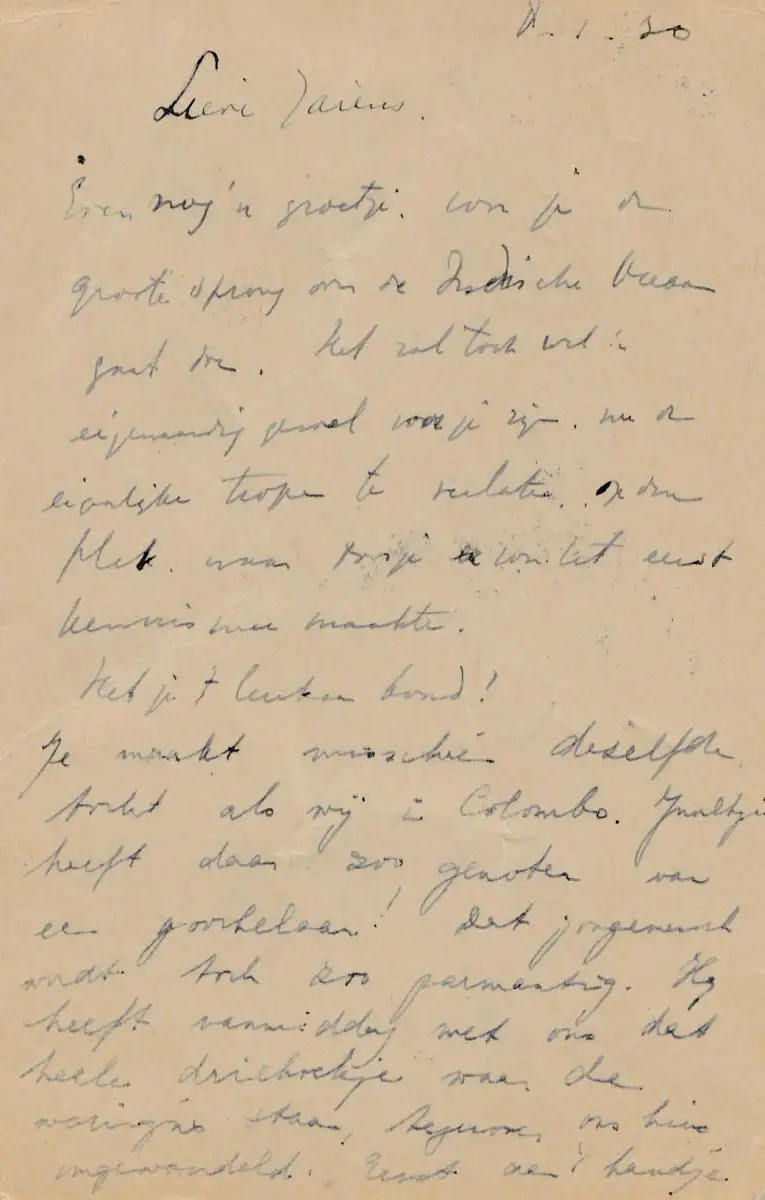 1. 30
Lieve
Even nog 'n groetje. voor je de
groote sprong over de Indische Oceaan
gaat doen. Het zal toch wel 'n
eigenaardig gevoel voor je zijn. nu de
eigenlijke tropen te verlaten. op den
plek. waar je er voor het eerst
kennis mee maakte.
Heb je 't leuk aan boord!
Je maakt misschien dezelfde
tocht als wij in Colombo.
heeft daar zoo genoten van
een goochelaar! Dat jongemensch
wordt toch zoo parmantig. Hij
heeft vanmiddag met ons dat
heele driehoekje waar de
waringins staan, tegenover ons huis
omgewandeld. Eerst aan 't handje